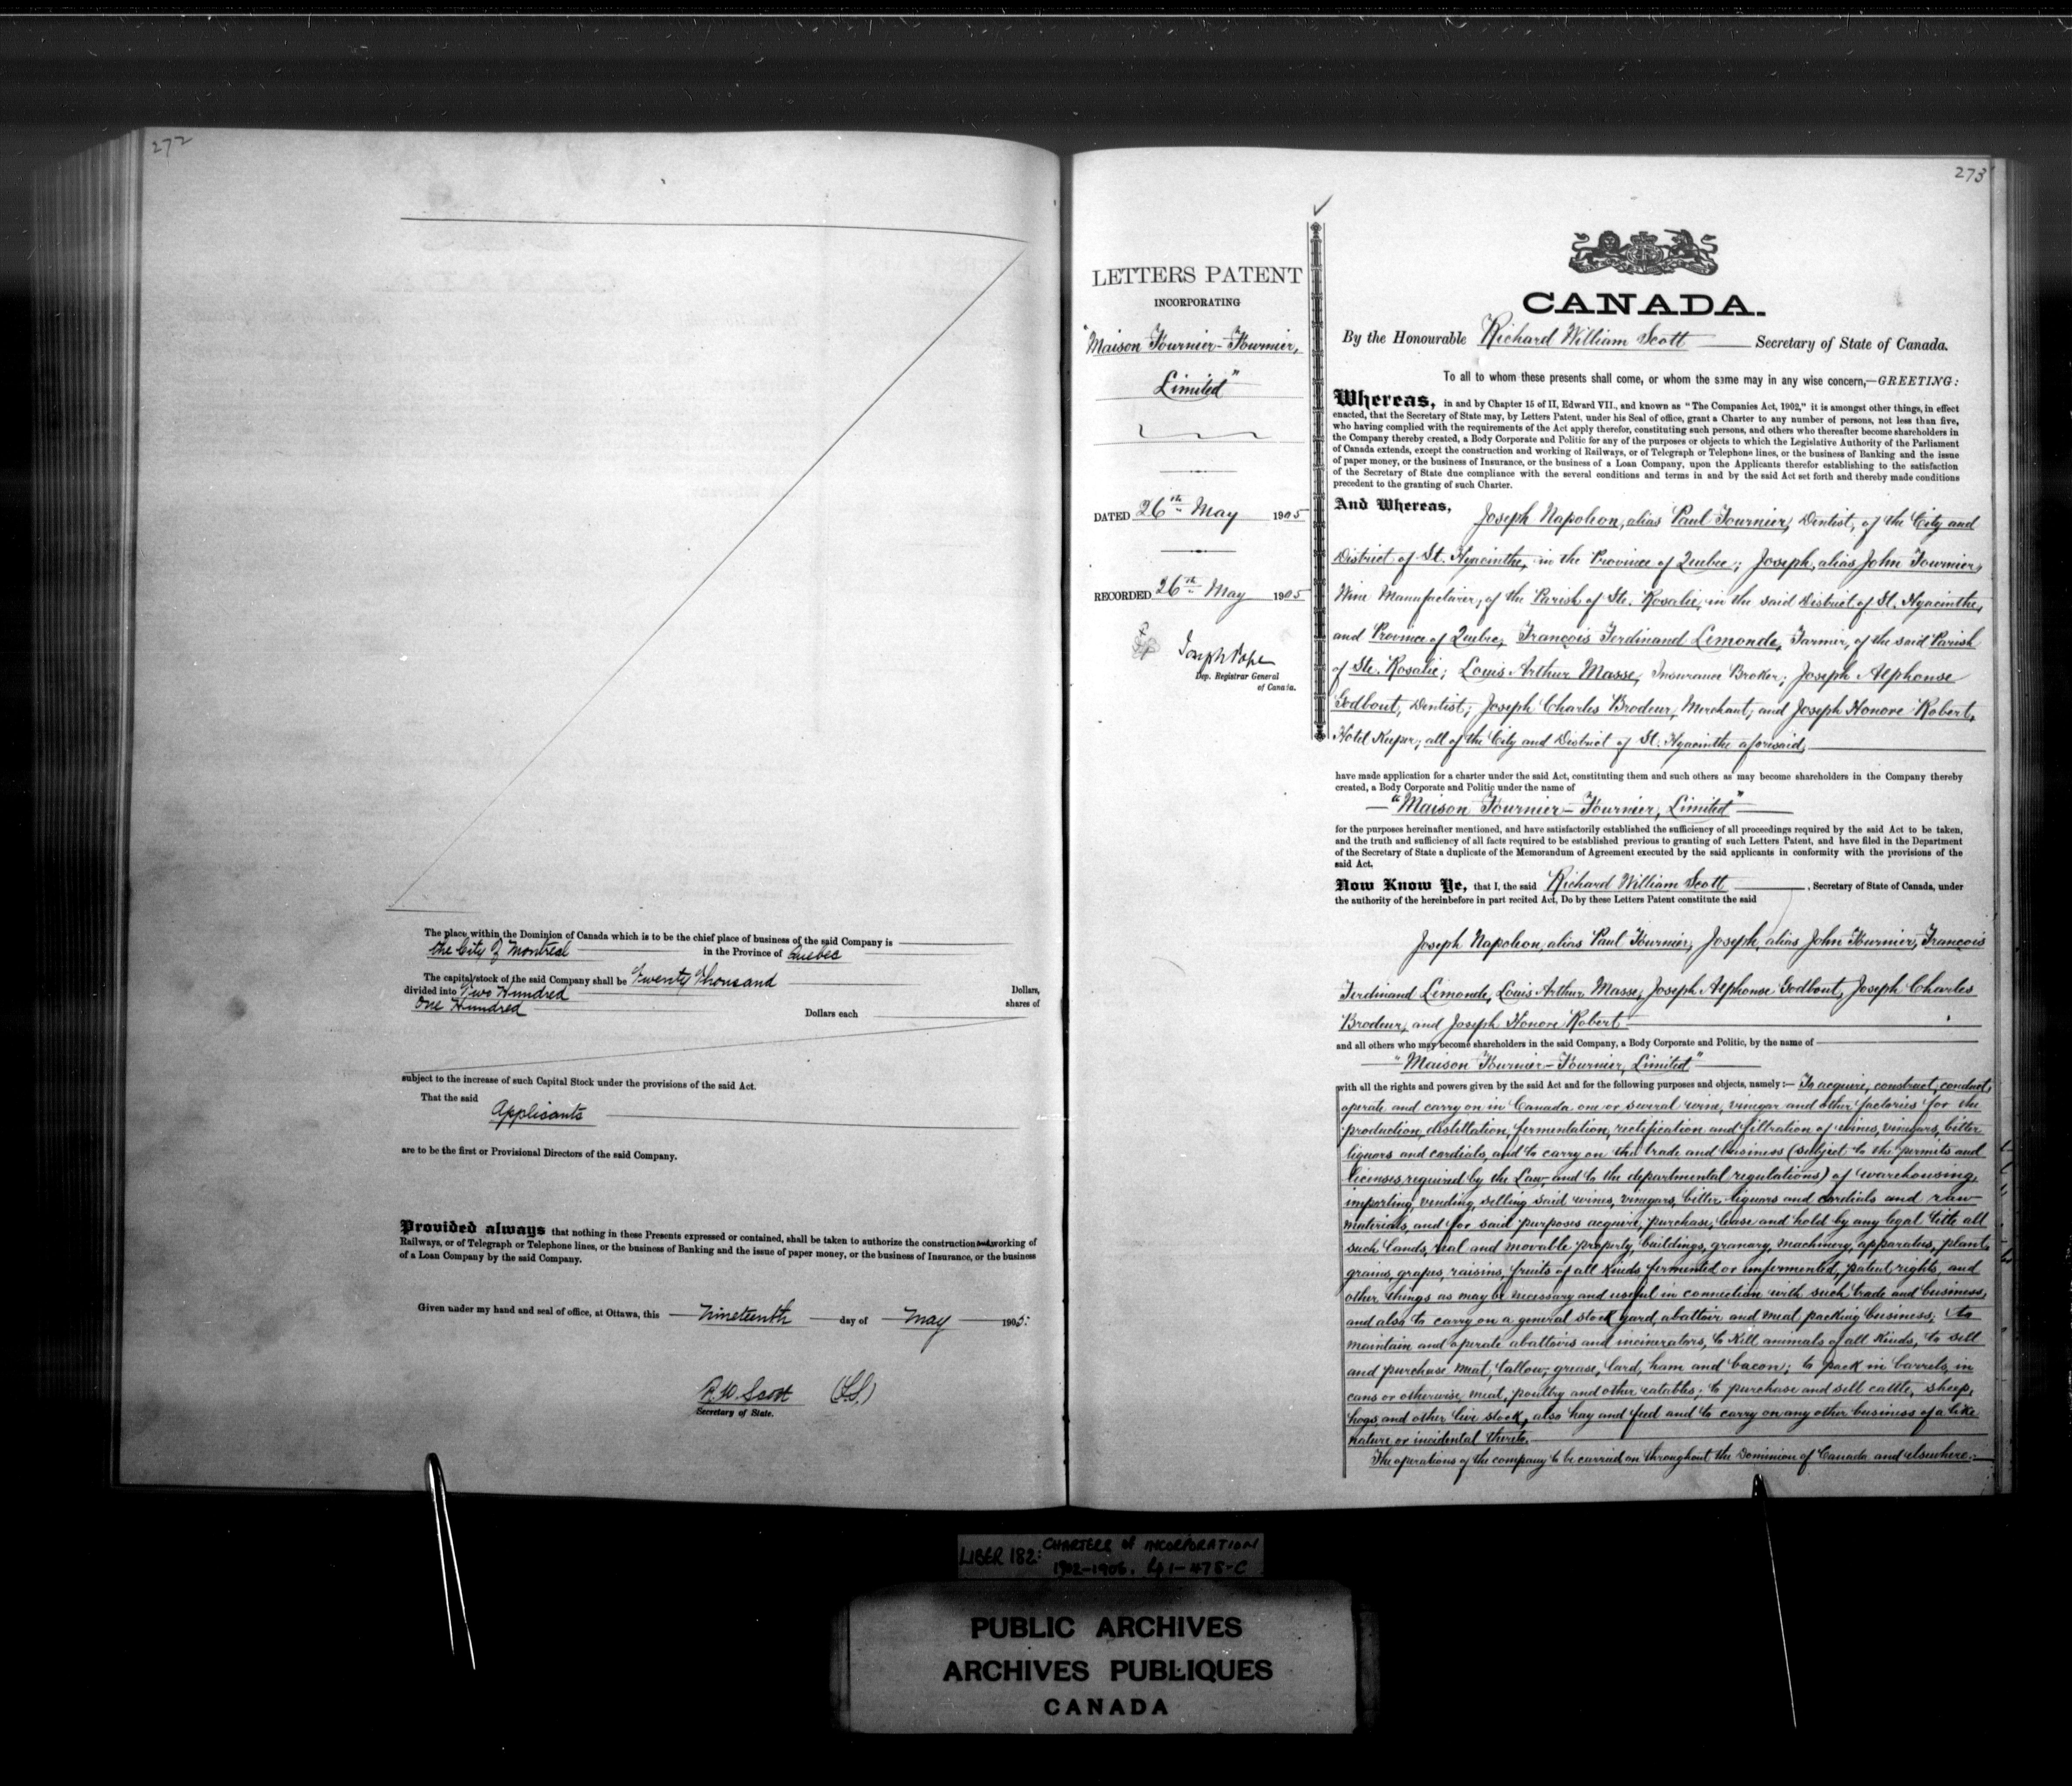 272
The place within the Dominion of Canada which is to be the chief place of business of the said Company is
the City of Montreal in the Province of Quebec
The capital stock of the said Company shall be Twenty Thousand Dollars,
divided into Two Hundred shares of
One Hundred Dollars each
subject to the increase of such Capital Stock under the provisions of the said Act.
That the said
Applicants
are to be the first or Provisional Directors of the said Company.
Provided always that nothing in these Presents expressed or contained, shall be taken to authorize the construction and working of
Railways, or of Telegraph or Telephone lines, or the business of Banking and the issue of paper money, or the business of Insurance, or the business
of a Loan Company by the said Company.
Given under my hand and seal of office, at Ottawa, this Nineteenth day of May 1905.
R W Scott (LS)
Secretary of State.
273
LETTERS PATENT
INCORPORATING
"Maison Fournier-Fournier,
Limited"
DATED 26th May 1905
RECORDED 26th May 1905
Joseph Pope
Dep. Registrar General
of Canada.
CANADA.
By the Honourable Richard William Scott Secretary of State of Canada.
To all to whom these presents shall come, or whom the same may in any wise concern,—GREETING:
Whereas, in and by Chapter 15 of II, Edward VII., and known as "The Companies Act, 1902," it is amongst other things, in effect
enacted, that the Secretary of State may, by Letters Patent, under his Seal of office, grant a Charter to any number of persons, not less than five,
who having complied with the requirements of the Act apply therefor, constituting such persons, and others who thereafter become shareholders in
the Company thereby created, a Body Corporate and Politic for any of the purposes or objects to which the Legislative Authority of the Parliament
of Canada extends, except the construction and working of Railways, or of Telegraph or Telephone lines, or the business of Banking and the issue
of paper money, or the business of Insurance, or the business of a Loan Company, upon the Applicants therefor establishing to the satisfaction
of the Secretary of State due compliance with the several conditions and terms in and by the said Act set forth and thereby made conditions
precedent to the granting of such Charter.
And Whereas,
Joseph Napoleon, alias Paul Fournier, Dentist, of the City and
District of St. Hyacinthe, in the Province of Quebec; Joseph, alias John Fournier,
Wine Manufacturer, of the Parish of Ste. Rosalie, in the said District of St. Hyacinthe,
and Province of Quebec, François Ferdinand Lemonde, Farmer, of the said Parish
of Ste. Rosalie; Louis Arthur Masse, Insurance Broker; Joseph Alphonse
Godbout, Dentist; Joseph Charles Brodeur, Merchant, and Joseph Honore Robert,
Hotel Keeper, all of the City and District of St. Hyacinthe aforesaid,
have made application for a charter under the said Act, constituting them and such others as may become shareholders in the Company thereby
created, a Body Corporate and Politic under the name of
"Maison Fournier-Fournier, Limited"
for the purposes hereinafter mentioned, and have satisfactorily established the sufficiency of all proceedings required by the said Act to be taken,
and the truth and sufficiency of all facts required to be established previous to granting of such Letters Patent, and have filed in the Department
of the Secretary of State a duplicate of the Memorandum of Agreement executed by the said applicants in conformity with the provisions of the
said Act.
Now Know Ye, that I, the said Richard William Scott, Secretary of State of Canada, under
the authority of the hereinbefore in part recited Act, Do by these Letters Patent constitute the said
Joseph Napoleon, alias Paul Fournier, Joseph, alias John Fournier, François
Ferdinand Lemonde, Louis Arthur Masse, Joseph Alphonse Godbout, Joseph Charles
Brodeur, and Joseph Honore Robert
and all others who may become shareholders in the said Company, a Body Corporate and Politic, by the name of
"Maison Fournier-Fournier, Limited"
with all the rights and powers given by the said Act and for the following purposes and objects, namely:— To acquire, construct, conduct,
operate and carry on in Canada one or several wine, vinegar and other factories for the
production, distillation, fermentation, rectification and filtration of wines, vinegars, bitter
liquors and cordials, and to carry on the trade and business (subject to the permits and
licenses required by the Law, and to the departmental regulations) of warehousing,
importing, vending, selling said wines, vinegars, bitter liquors and cordials and raw
materials, and for said purposes acquire, purchase, lease and hold by any legal title all
such lands, real and movable property, buildings, granary, machinery, apparatus, plant,
grains, grapes, raisins, fruits of all kinds fermented or unfermented, patent rights, and
other things as may be necessary and useful in connection with such trade and business,
and also to carry on a general stock yard, abattoir and meat packing business; to
maintain and operate abattoirs and incinerators, to kill animals of all kinds, to sell
and purchase meat, tallow, grease, lard, ham and bacon; to pack in barrels, in
cans or otherwise meat, poultry and other eatables; to purchase and sell cattle, sheep,
hogs, and other live stock, also hay and feed and to carry on any other business of a like
nature or incidental thereto.
The operations of the company to be carried on throughout the Dominion of Canada and elsewhere.
LIBER 182: CHARTERS of INCORPORATION
1902-1906. pp 1-478-C
PUBLIC ARCHIVES
ARCHIVES PUBLIQUES
CANADA